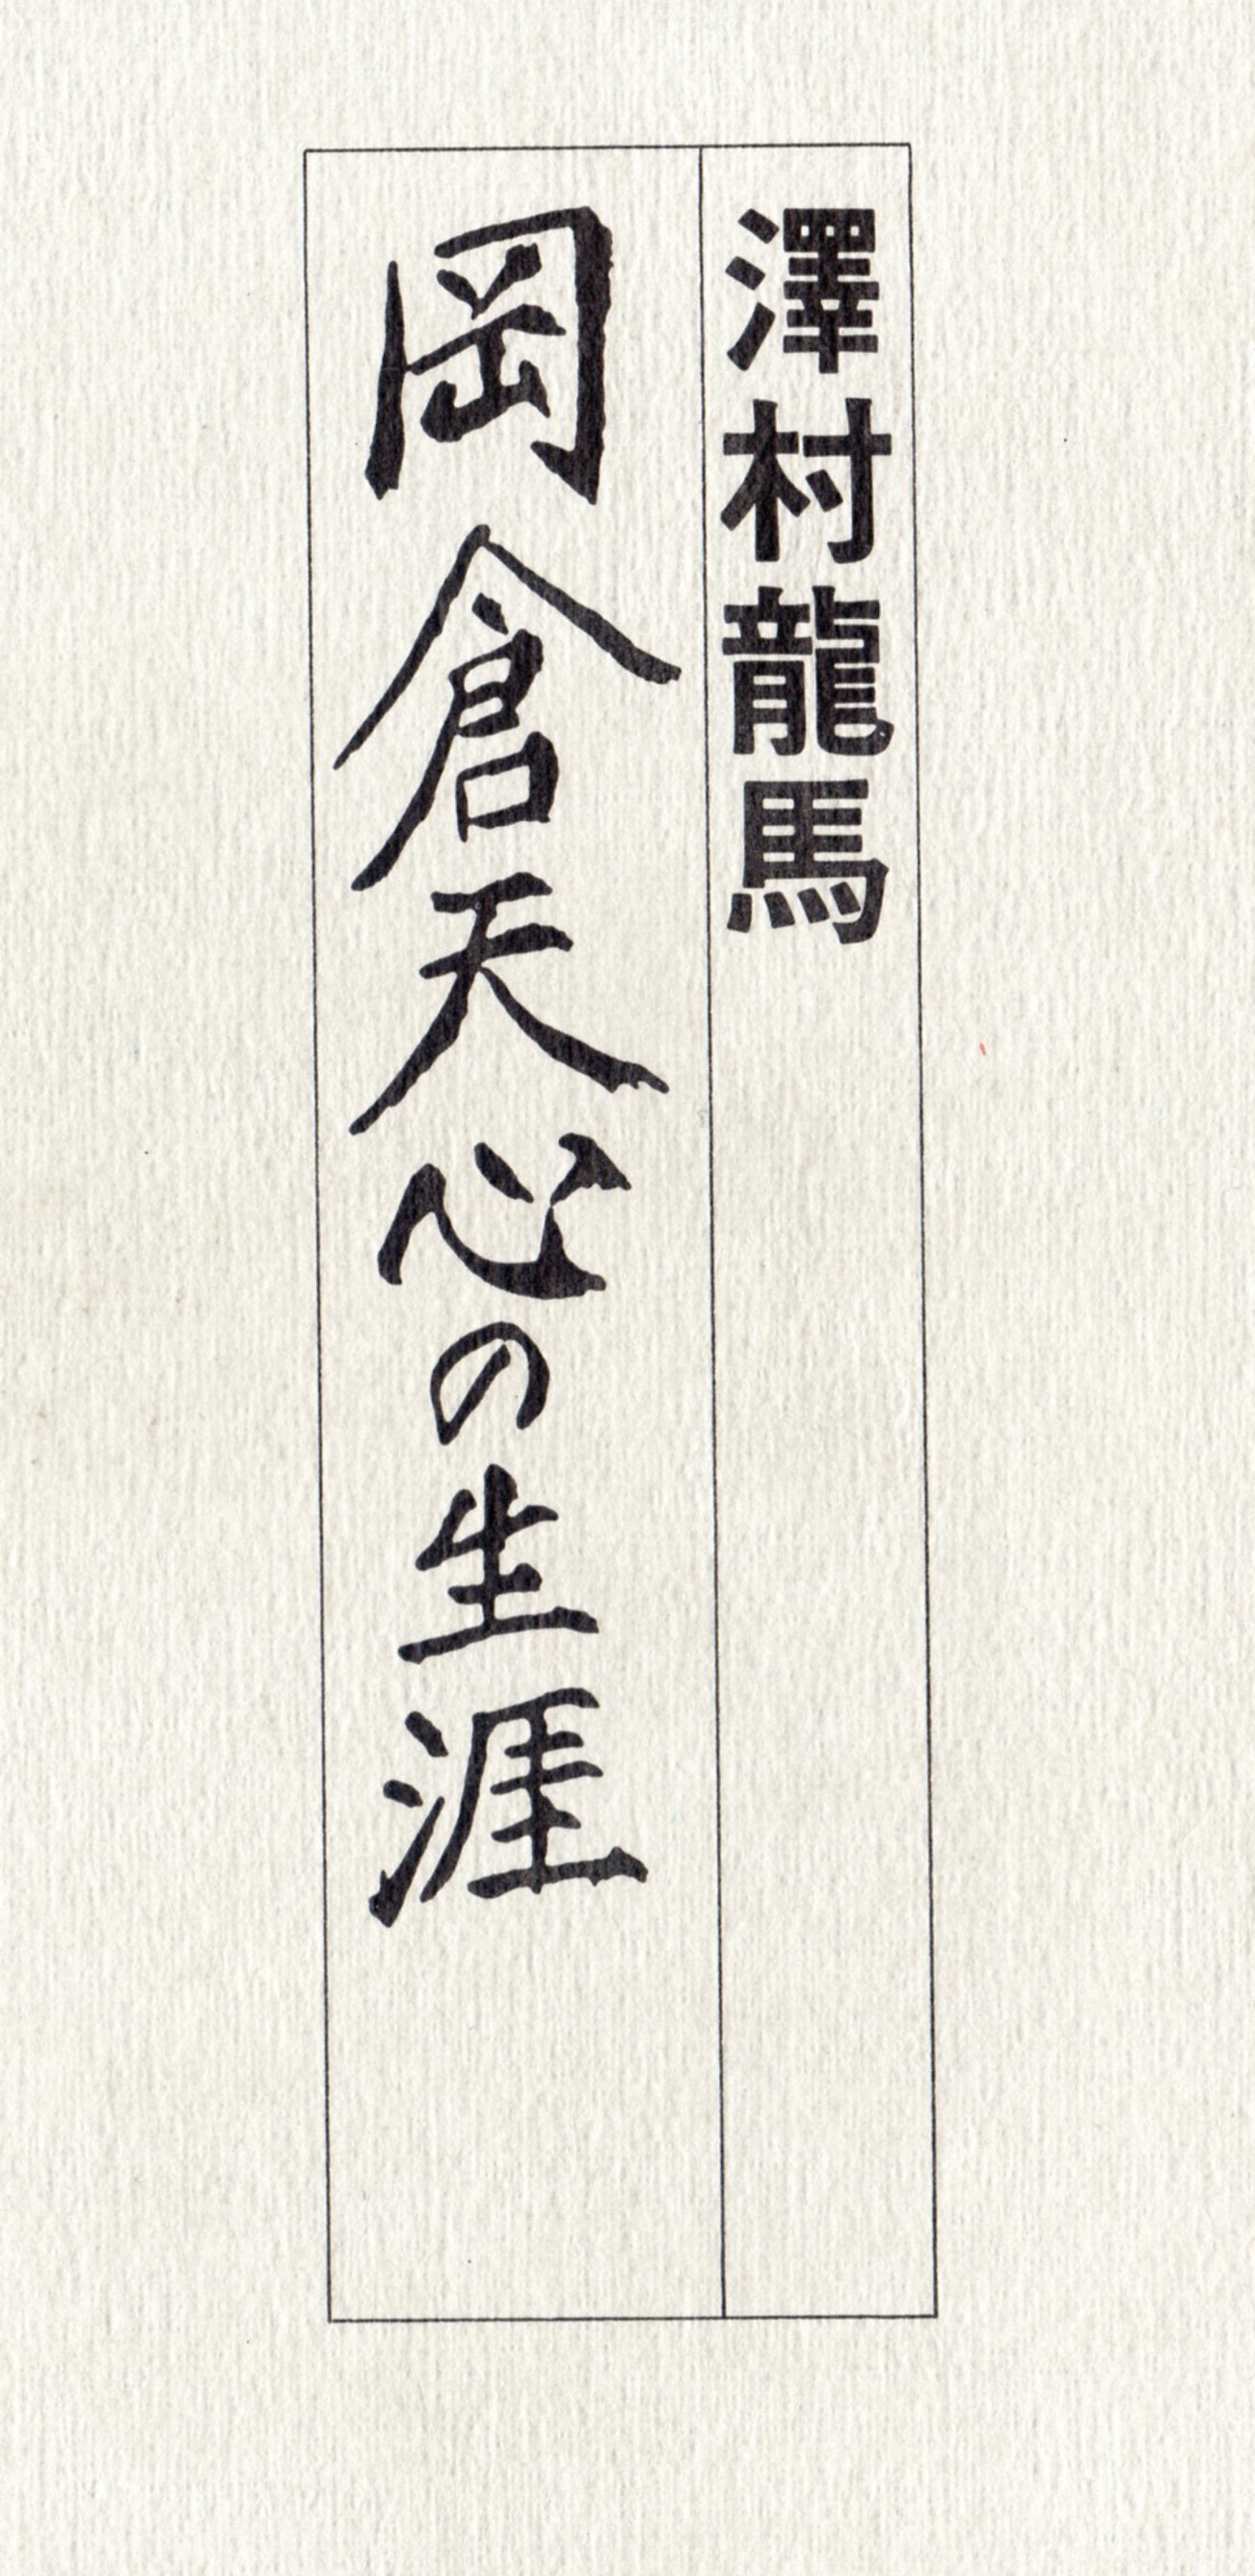 澤村龍馬
岡倉天心の生涯